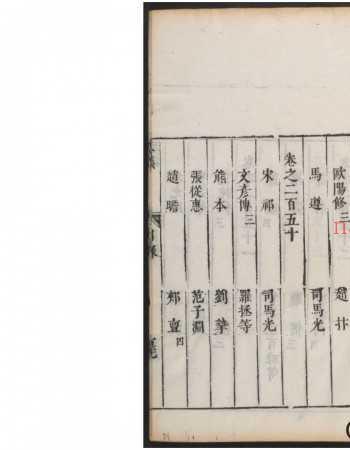 歐陽修三 趙抃
馬遵 司馬光
卷之二百五十
宋祁 司馬光
文彥博三 羅拯等
熊本 劉摯
張從惠 范子淵
趙瞻 郟亶四
目錄